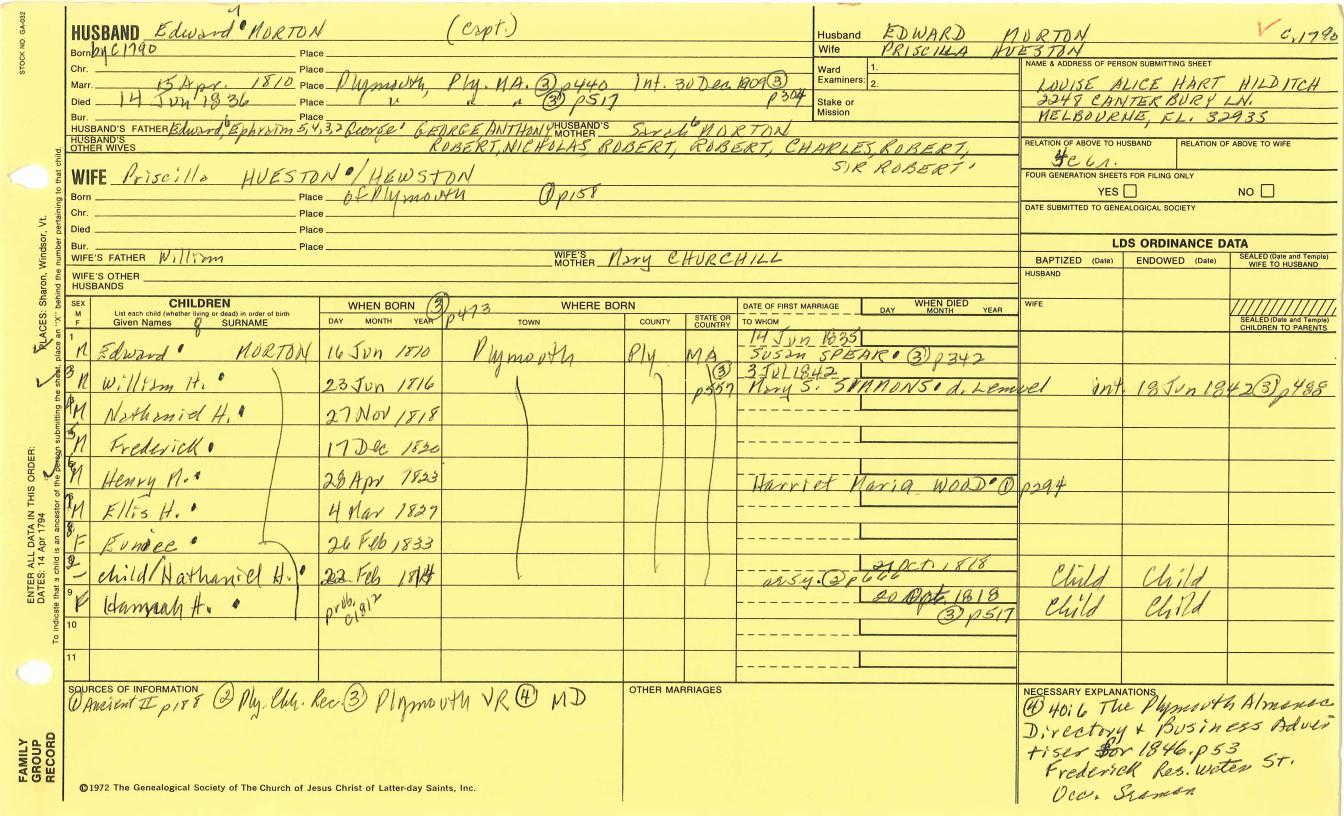 STOCK NO. GA-032
HUSBAND Edward 7 MORTON (Capt.)
Born by C1790 Place
Chr. Place
Marr. 15 Apr. 1810 Place Plymouth, Ply. MA. ③ p440 Int. 30 Dec 1809 ③ p304
Died 14 Jun 1836 Place " " " ③ p517
Bur. Place
HUSBAND'S FATHER Edward 6, Ephraim 5, 4, 3, 2 George 1 GEORGE, ANTHONY HUSBAND'S MOTHER Sarah 6 MORTON
HUSBAND'S OTHER WIVES ROBERT, NICHOLAS, ROBERT, ROBERT, CHARLES, ROBERT,
SIR ROBERT
WIFE Priscilla HUESTON / HEWSTON
Born Place of Plymouth ① p158
Chr. Place
Died Place
Bur. Place
WIFE'S FATHER William WIFE'S MOTHER Mary CHURCHILL
WIFE'S OTHER HUSBANDS
Husband EDWARD MORTON C1790
Wife PRISCILLA HUESTON
Ward Examiners: 1. 2.
Stake or Mission
NAME & ADDRESS OF PERSON SUBMITTING SHEET
LOUISE ALICE HART HILDITCH
2249 CANTERBURY LN.
MELBOURNE, FL. 32935
RELATION OF ABOVE TO HUSBAND RELATION OF ABOVE TO WIFE
FOUR GENERATION SHEETS FOR FILING ONLY
YES NO
DATE SUBMITTED TO GENEALOGICAL SOCIETY
LDS ORDINANCE DATA
BAPTIZED (Date) ENDOWED (Date) SEALED (Date and Temple) WIFE TO HUSBAND
HUSBAND
WIFE
SEALED (Date and Temple) CHILDREN TO PARENTS
SEX M F CHILDREN WHEN BORN ③ p473 WHERE BORN DATE OF FIRST MARRIAGE WHEN DIED
List each child (whether living or dead) in order of birth
Given Names 8 SURNAME DAY MONTH YEAR TOWN COUNTY STATE OR COUNTRY TO WHOM DAY MONTH YEAR
1 M Edward MORTON 16 Jun 1810 Plymouth Ply MA 14 Jun 1835
SUSAN SPEAR ③ p342
3 M William H. 23 Jun 1816 ③ p557 3 Jul 1842
Mary S. SIMMONS d. Lemuel int. 18 Jun 1842 ③ p488
4 M Nathaniel H. 27 Nov 1818
5 M Frederick 17 Dec 1820
6 M Henry M. 28 Apr 1823 Harriet Maria WOOD ① p294
7 M Ellis H. 4 Mar 1827
8 F Eunice 26 Feb 1833
child/Nathaniel H. 22 Feb 1814 21 Oct. 1818
② p666 Child Child
9 F Hannah H. prob. C1812 1818 Child Child
③ p517
10
11
SOURCES OF INFORMATION
① Ancient II p188 ② Ply. Chh. Rec. ③ Plymouth VR ④ MD
OTHER MARRIAGES
NECESSARY EXPLANATIONS
④ 40:6 The Plymouth Almanac
Directory & Business Adver
tiser for 1846. p53
Frederick Res. Water St.
Occ. Seaman
©1972 The Genealogical Society of The Church of Jesus Christ of Latter-day Saints, Inc.
FAMILY GROUP RECORD
ENTER ALL DATA IN THIS ORDER:
DATES: 14 Apr 1794
PLACES: Sharon, Windsor, Vt.
To indicate that a child is an ancestor of the person submitting the sheet, place an "X" behind the number pertaining to that child.